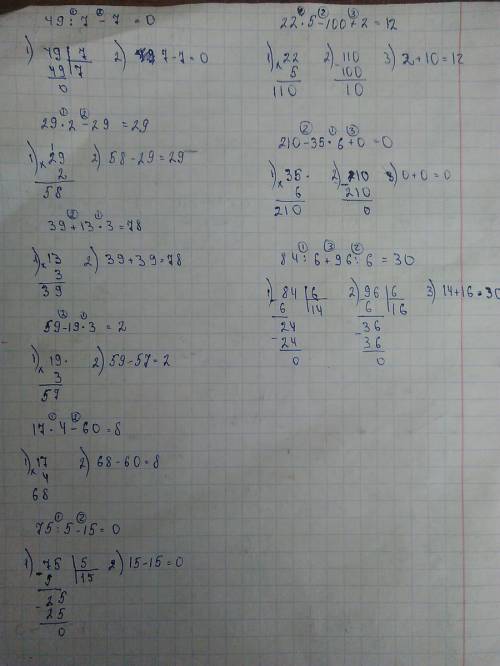 49 : 7 - 7 = 0
1) 49 | 7
49 | 7
0
2) 7-7=0
29 · 2 - 29 = 29
1) × 29
2
58
2) 58-29=29
39 + 13 · 3 = 78
1) × 13
3
39
2) 39+39=78
59-19 · 3 = 2
1) × 19
3
57
2) 59-57=2
17 · 4 - 60 = 8
1) × 17
4
68
2) 68-60=8
75 : 5 - 15 = 0
1) 75 | 5
5 | 15
- 25
25
0
2) 15-15=0
22 · 5 - 100 + 2 = 12
1) × 22
5
110
2) - 110
100
10
3) 2+10=12
210-35 · 6 + 0 = 0
1) × 35
6
210
2) - 210
210
0
3) 0+0=0
84 : 6 + 96 : 6 = 30
1) - 84 | 6
6 | 14
24
- 24
0
2) - 96 | 6
6 | 16
36
- 36
0
3) 14+16=30